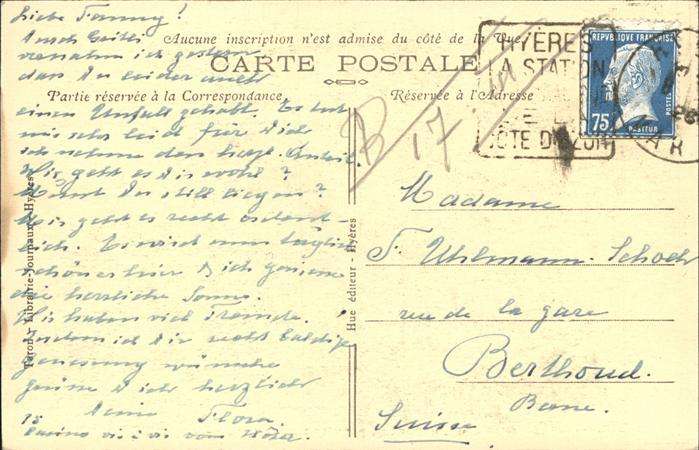 Aucune inscription n'est admise du côté de la Vue
CARTE POSTALE
Partie réservée à la Correspondance
Réservée à l'Adresse
Liebe Fanny!
Durch
vernahm ich gestern
dass Du leider auch
einen Unfall gehabt. Es tut
mir sehr leid für Dich
ich nehme den herzl. Anteil.
Wie geht es Dir wohl?
Musst Du still liegen?
Mir geht es recht ordent-
lich. Es wird nun täglich
schöner hier & ich geniesse
die herzliche Sonne.
Wir haben viel Fremde.
Indem ich Dir recht baldige
Genesung wünsche
grüsse Dich herzlich
Deine Flora.
vis à vis vom
HYÈRES
LA STATION
CÔTE D'AZUR
REPUBLIQUE FRANÇAISE
POSTES
75c
PASTEUR
B
17
Madame
F. Uhlmann-Schoch
rue de la gare
Berthoud.
Berne.
Suisse
Hue éditeur - Hyères
Librairie-Journaux - Hyères